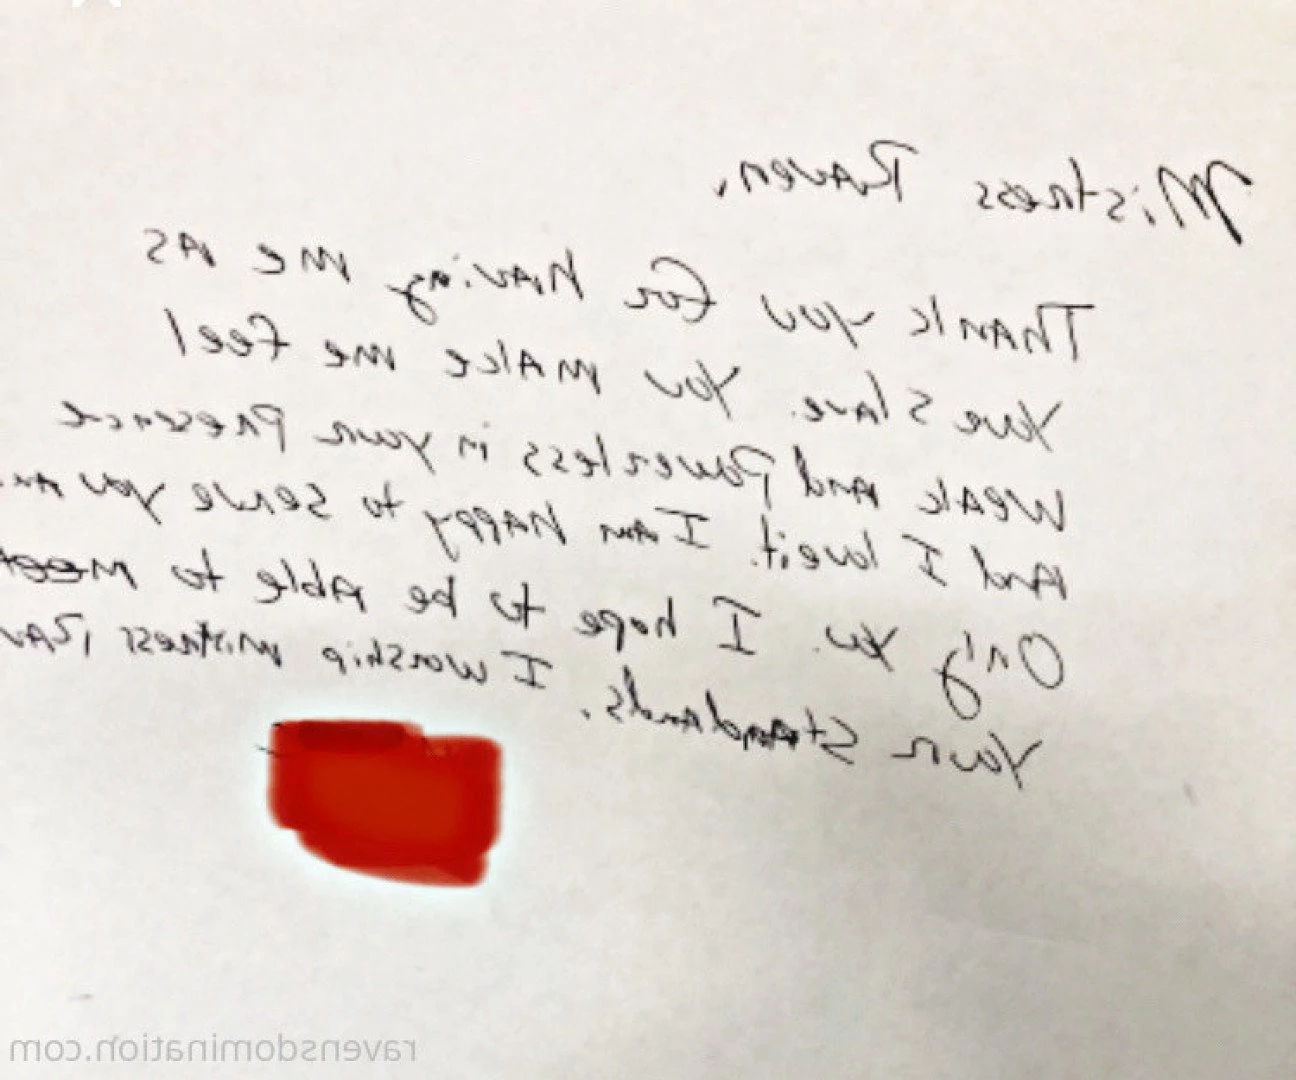 Mistress Raven,
Thank you for having me as
Your slave. You make me feel
weak and powerless in your presence
and I love it. I am happy to serve you and
Only You. I hope to be able to meet
Your standards. I worship mistress
ravensdomination.com